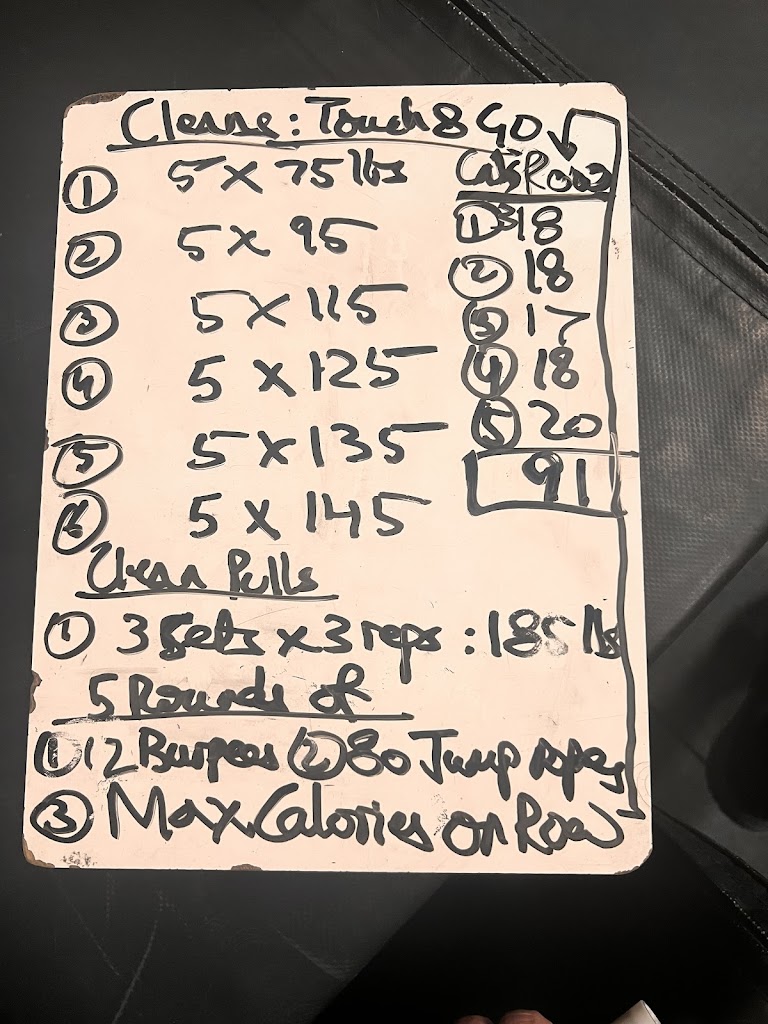 Cleans: Touch & Go
① 5 x 75 lbs
② 5 x 95
③ 5 x 115
④ 5 x 125
⑤ 5 x 135
⑥ 5 x 145
Cals Row
① 18
② 18
③ 17
④ 18
⑤ 20
91
Clean Pulls
① 3 Sets x 3 reps : 185 lbs
5 Rounds of
① 12 Burpees ② 80 Jump ropes
③ Max Calories on Row